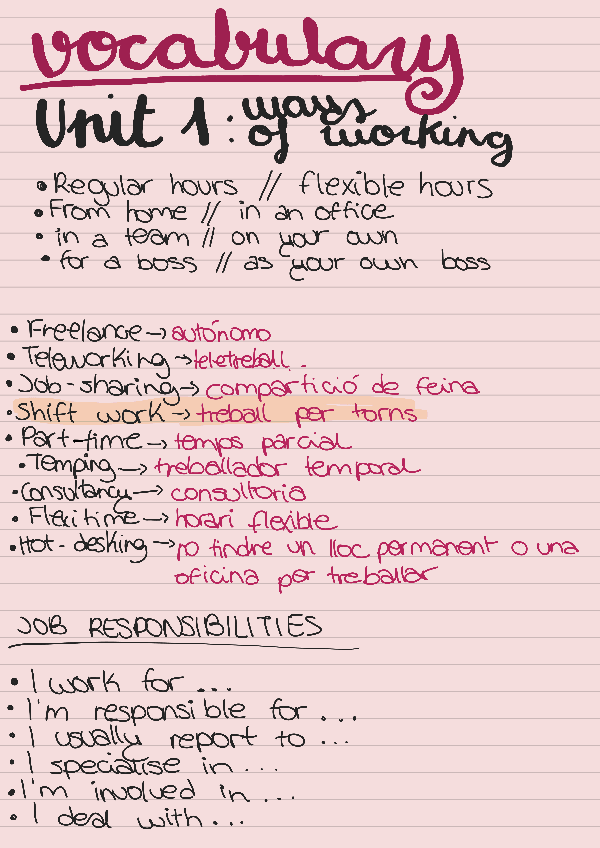 vocabulary
Unit 1: ways
of working
• Regular hours // flexible hours
• From home // in an office
• in a team // on your own
• for a boss // as your own boss
• Freelance → autónomo
• Teleworking → teletreball.
• Job-sharing → compartició de feina
• Shift work → treball per torns
• Part-time → temps parcial
• Temping → treballador temporal
• Consultancy → consultoria
• Flexitime → horari flexible
• Hot-desking → no tindre un lloc permanent o una
oficina per treballar
JOB RESPONSIBILITIES
• I work for ...
• I'm responsible for ...
• I usually report to ...
• I specialise in ...
• I'm involved in ...
• I deal with ...